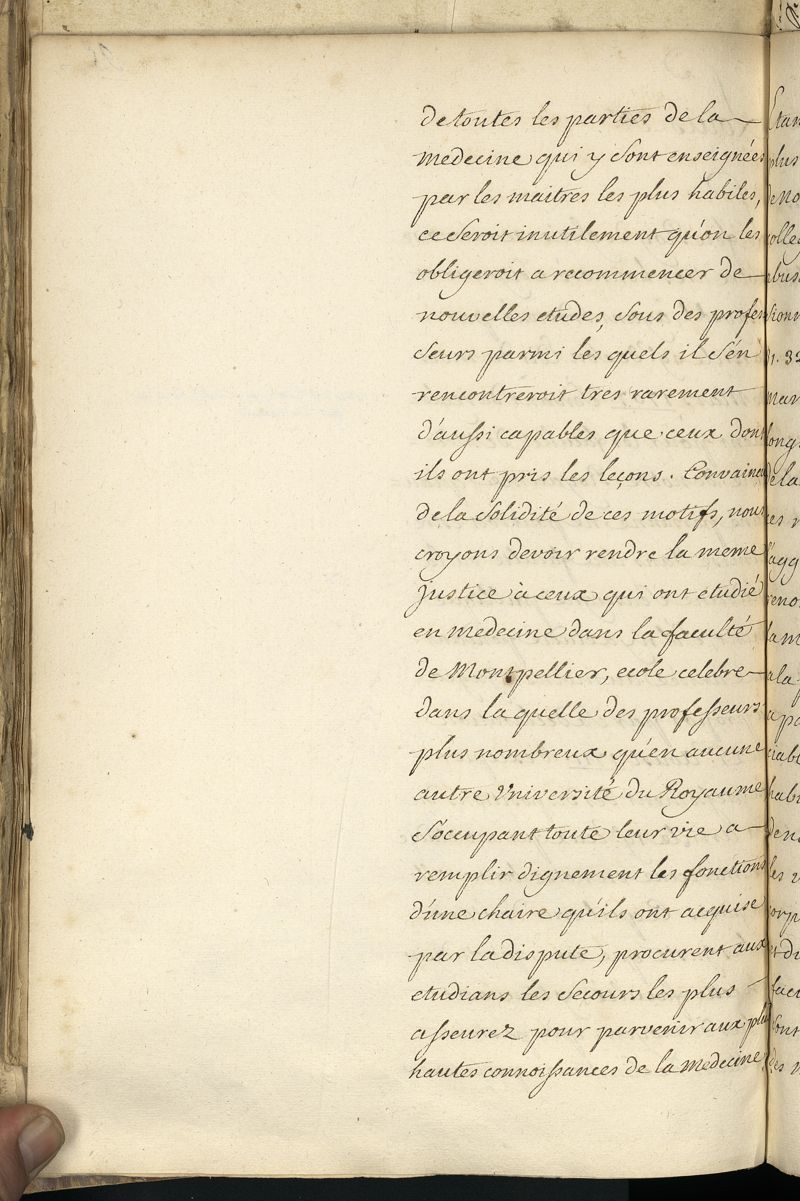 de toutes les parties de la
medecine qui y sont enseignées
par les maitres les plus habiles,
ce seroit inutilement qu'on les
obligeroit a recommencer de
nouvelles etudes, sous des profes
seurs parmi les quels il s'én
rencontreroit tres rarement
d'aussi capables que ceux dont
ils ont pris les leçons. Convaincu
de la solidité de ces motifs, nous
croyons devoir rendre la meme
justice à ceux qui ont etudié
en medecine dans la faculté
de Montpellier, ecole celebre
dans la quelle des professeurs
plus nombreux qu'en aucune
autre Vniversité du Royaume
s'occupant toute leur vie a
remplir dignement les fonctions
d'une chaire qu'ils ont acquise
par la dispute, procurent aux
etudians les secours les plus
asseurez pour parvenir aux plus
hautes connoissances de la medecine